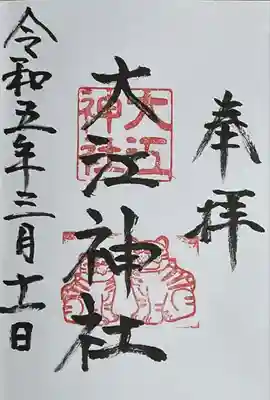 奉拝
大江神社
大江
神社
令和五年三月十一日